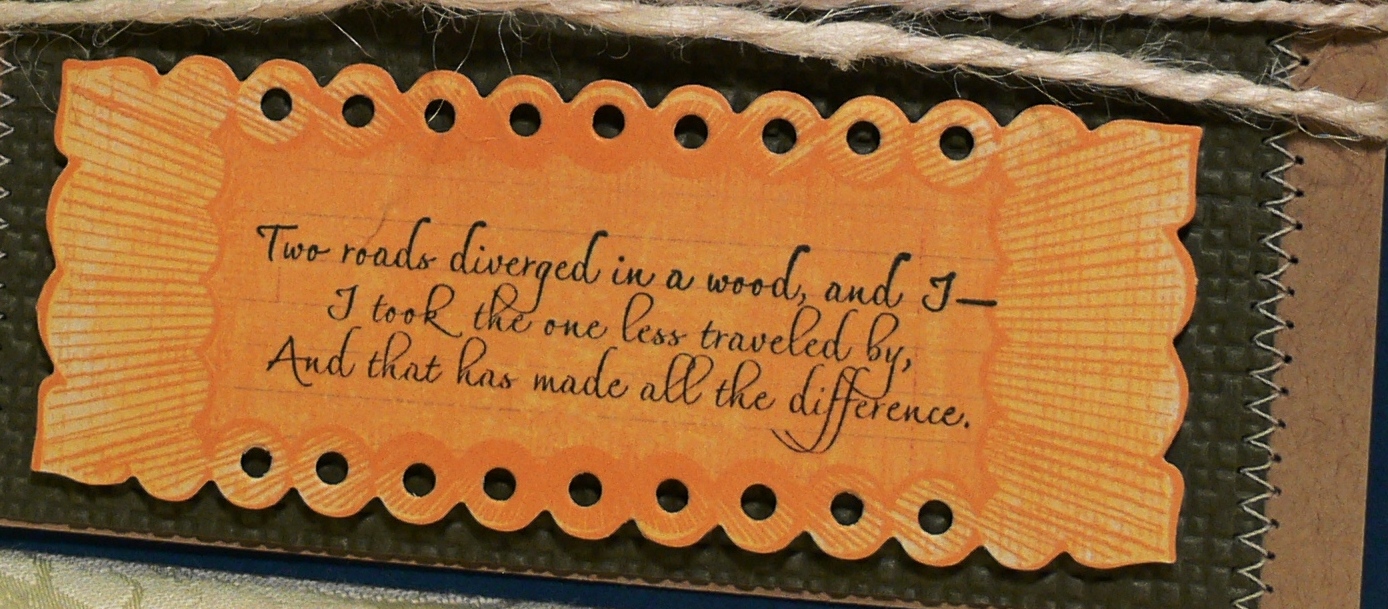 Two roads diverged in a wood, and I—
I took the one less traveled by,
And that has made all the difference.